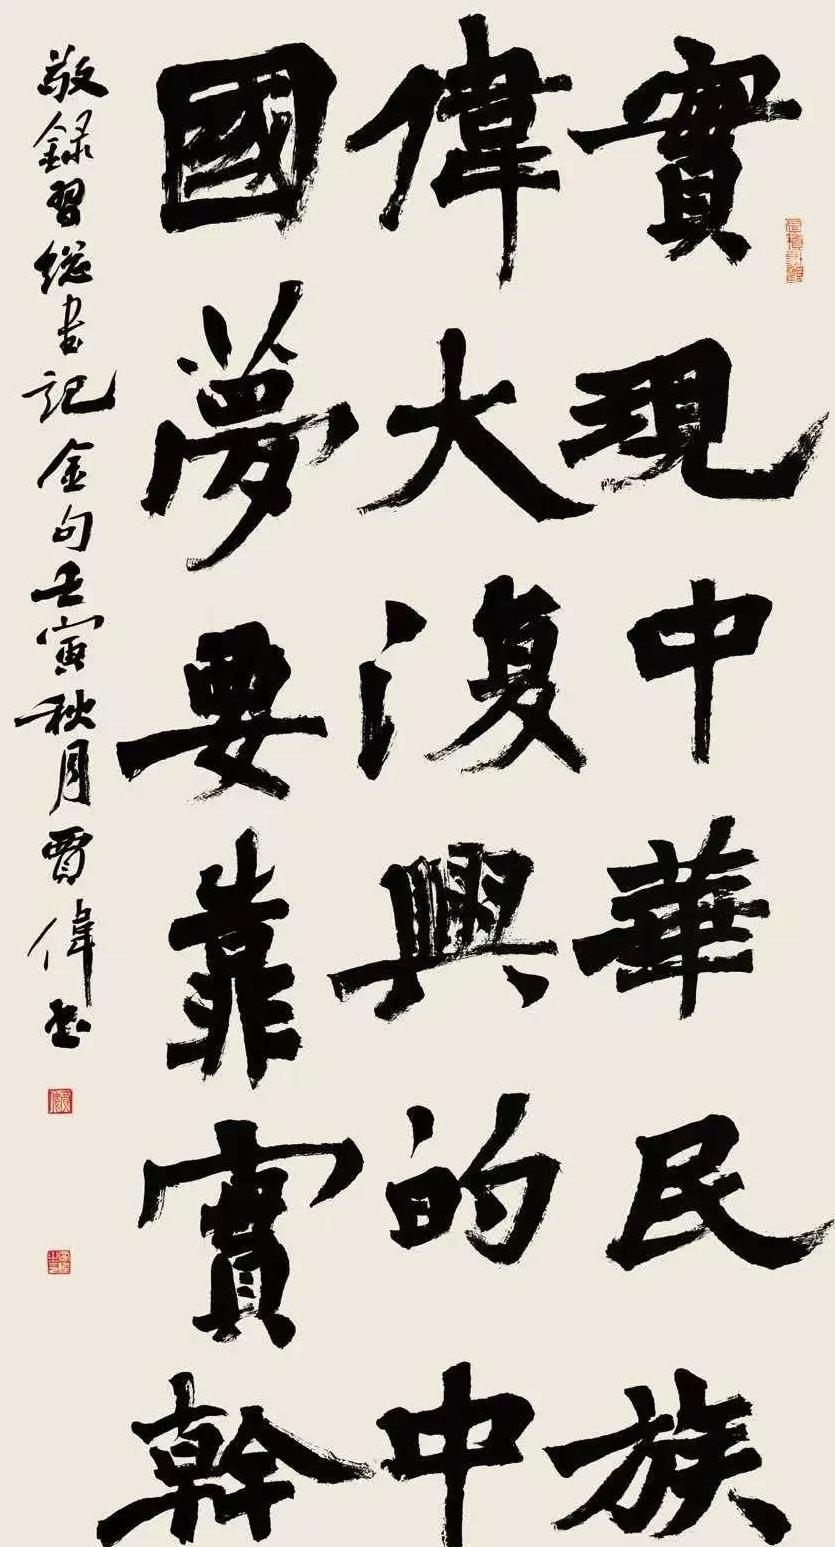 實現中華民族
偉大復興的中
國夢要靠實幹
敬録習総書記金句壬寅秋月賈偉書